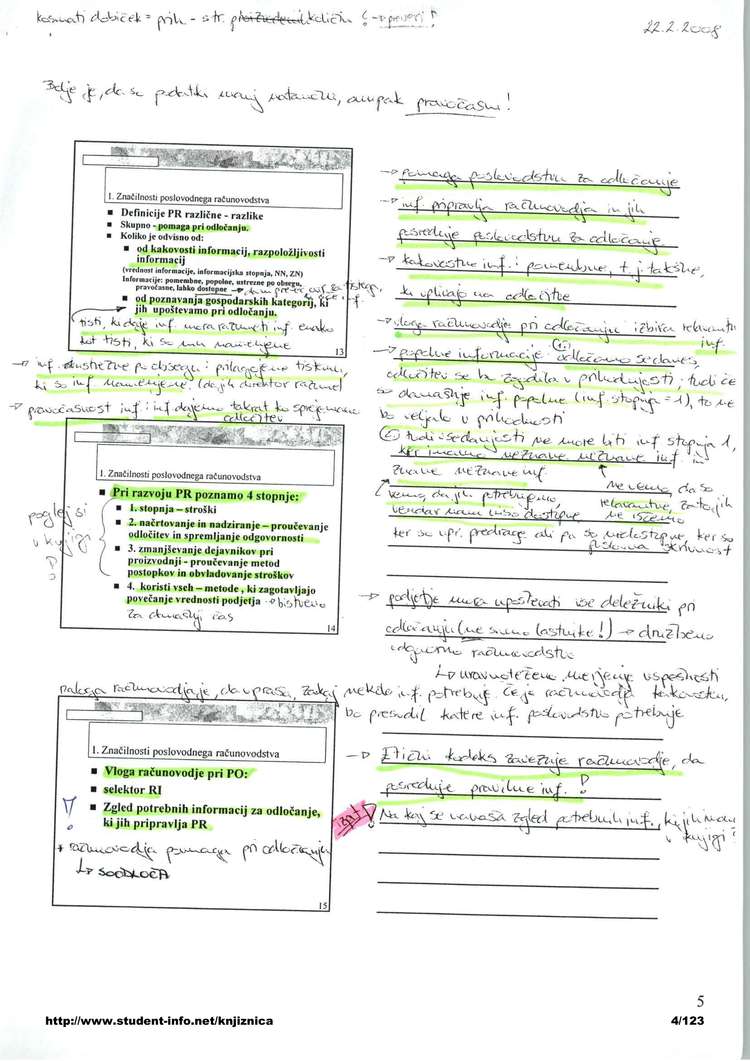 kosmati dobiček = prih - str. proizvedenih količin! → preveri!
22.2.2008
Bolje je, da so podatki manj natančni, ampak pravočasni!
1. Značilnosti poslovodnega računovodstva
■ Definicije PR različne - razlike
■ Skupno - pomaga pri odločanju.
■ Koliko je odvisno od:
■ od kakovosti informacij, razpoložljivosti
informacij
(vrednost informacije, informacijska stopnja, NN, ZN)
Informacije: pomembne, popolne, ustrezne po obsegu,
pravočasne, lahko dostopne
■ od poznavanja gospodarskih kategorij, ki
jih upoštevamo pri odločanju.
tisti, ki daje inf. mora razumeti inf. enako
kot tisti, ki so mu namenjene
13
→ inf. ustrezne po obsegu: prilagojene tistim,
ki so inf namenjene. (da jih direktor razume)
→ pravočasnost inf: inf dajemo takrat ko sprejemamo
odločitev
→ pomaga poslovodstvu za odločanje
→ inf. pripravlja računovodja in jih
posreduje poslovodstvu za odločanje
→ kakovostne inf.: pomembne, t.j. takšne,
ki vplivajo na odločitve
→ vloga računovodje pri odločanju: izbira relevantnih
inf.
→ popolne informacije: odločamo se danes,
odločitev se bo zgodila v prihodnjosti; tudi če
so današnje inf. popolne (inf. stopnja = 1), to ne
bo veljalo v prihodnosti
tudi v sedanjosti ne more biti inf. stopnja 1,
ker imamo neznane neznane inf. in
znane neznane inf
vemo, da jih potrebujemo,
vendar nam niso dostopne
ne vemo, da so
relevantne, zato jih
ne iščemo
ker so npr. predrage ali pa so nedostopne, ker so
poslovna skrivnost
1. Značilnosti poslovodnega računovodstva
■ Pri razvoju PR poznamo 4 stopnje:
■ 1. stopnja – stroški
■ 2. načrtovanje in nadziranje – proučevanje
odločitev in spremljanje odgovornosti
■ 3. zmanjševanje dejavnikov pri
proizvodnji - proučevanje metod
postopkov in obvladovanje stroškov
■ 4. koristi vseh – metode , ki zagotavljajo
povečanje vrednosti podjetja → bistveno
za današnji čas
14
poglej si
v knjigi
?
→ podjetje mora upoštevati vse deležnike pri
odločanju (ne samo lastnike!) → družbeno
odgovorno računovodstvo
↳ uravnoteženo merjenje uspešnosti
naloga računovodja je, da vpraša, zakaj nekdo inf. potrebuje. Če je računovodja
bo presodil katere inf. poslovodstvo potrebuje
1. Značilnosti poslovodnega računovodstva
■ Vloga računovodje pri PO:
■ selektor RI
■ Zgled potrebnih informacij za odločanje,
ki jih pripravlja PR
* računovodja pomaga pri odločanju
↳ SOODLOČA
15
→ Etični kodeks zavezuje računovodje, da
posreduje pravilne inf.!
Na kaj se nanaša zgled potrebnih inf., ki jih
v knjigi?
5
http://www.student-info.net/knjiznica
4/123